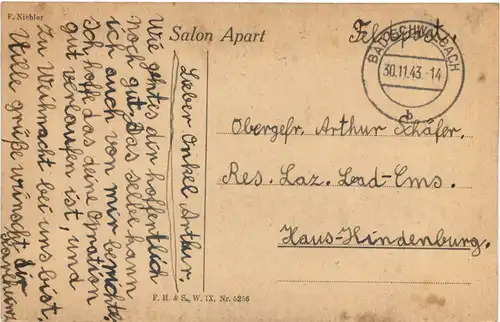 P. Niehler
Salon Apart
Feldpost.
BAD SCHWALBACH
30.11.43.-14
b
Lieber Onkel Arthur.
Wie gehts dir hoffentlich
noch gut. Das selbe kann
ich auch von mir berichten
Ich hoffe das deine Opration
gut verlaufen ist, und
zu Weihnacht bei uns bist.
Viele grüße wünscht dir
Karlheinz
Obergefr. Arthur Schäfer.
Res. Laz. Bad-Ems.
Haus-Hindenburg.
F. H. & S., W. IX. Nr. 5256